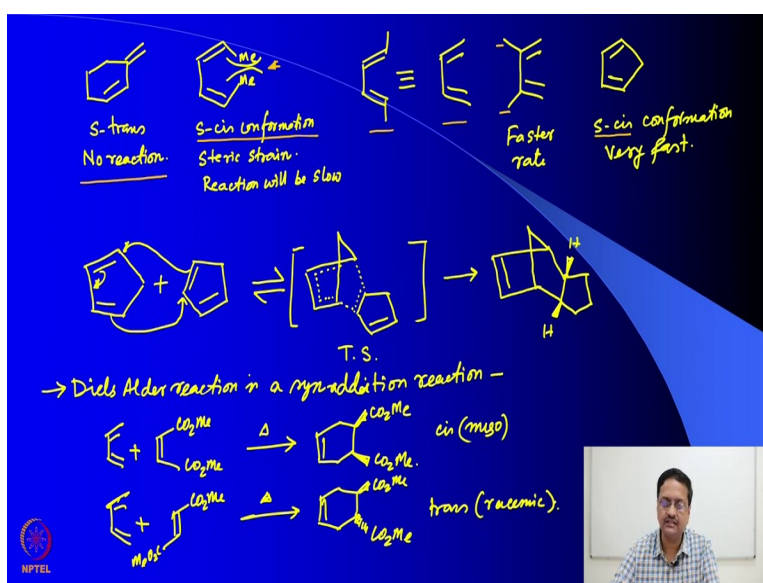 Me
Me
S-trans
No reaction.
S-cis conformation
Steric strain.
Reaction will be slow
≡
Faster
rate
S-cis conformation
Very fast.
+
⇌
→
H
H
T.S.
→ Diels Alder reaction is a syn addition reaction —
+
CO₂Me
CO₂Me
Δ
CO₂Me
CO₂Me.
cis (meso)
+
CO₂Me
MeO₂C
Δ
CO₂Me
CO₂Me
trans (racemic).
NPTEL